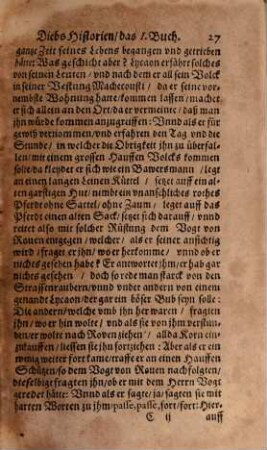 Diebs Historien/das I. Buch. 27
gantze Zeit seines Lebens begangen vnd getrieben
hätte: Was geschicht aber? Lycaon erfährt solches
von seinen Leuten / vnd nach dem er all sein Volck
in seiner Vestung Macheconsti / da er seine vor-
nembste Wohnung hatte/kommen lassen/machet
er sich allein an den Ort/da er vermeinte/daß man
jhn würde kommen anzugreiffen: Vnnd als er für
gewiß vernommen/vnd erfahren den Tag vnd die
Stunde / in welcher die Obrigkeit jhn zu vberfal-
len/mit einem grossen Hauffen Volcks kommen
solte/da kleydet er sich wie ein Bawersmann / leget
an einen langen Leinen Küttel / setzet auff einal-
ten garstigen Hut/nimbt ein vnansehliches rohes
Pferde ohne Sattel/ohne Zaum/leget auff das
Pferde einen alten Sack/setzt sich darauff/vnnd
reitet also mit solcher Rüstung dem Vogt von
Rouen entgegen/welcher / als er seiner ansichtig
wird/fraget er jhn/wo er herkomme / vnd ob er
nichts gesehen habe? Er antwortet jhm/er hab gar
nichts gesehen / doch so rede man starck von den
Strassenraubern/vnd vnder andern von einem
genandt Lycaon/der gar ein böser Bub seyn solle:
Die andern/welche vmb jhn her waren / fragten
jhn/wo er hin wolte/vnd als sie von jhm verstun-
den/er wolte nach Roven ziehen/ allda Korn ein-
zukauffen/liessen sie jhn fortziehen: Aber als er ein
wenig weiter fort kame/traffe er an einen Hauffen
Schützen/so dem Vogt von Rauen nachfolgten/
dieselbige fragten jhn/ob er mit dem Herrn Vogt
geredet hätte: Vnnd als er sagte/ja/sagten sie mit
harten Worten zu jhm/passe, passe, fort/fort: Hier-
C ij auff